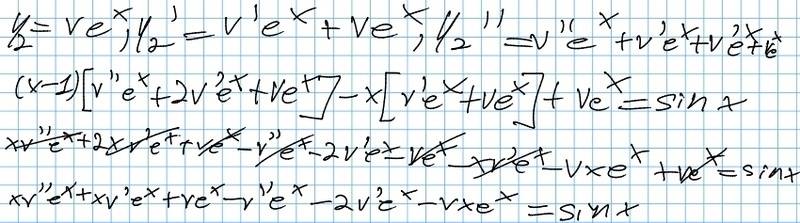 y₂ = ve^x, y₂' = v'e^x + ve^x, y₂'' = v''e^x + v'e^x + v'e^x + ve^x
(x-1)[v''e^x + 2v'e^x + ve^x] - x[v'e^x + ve^x] + ve^x = sin x
xv''e^x + 2xv'e^x + ve^x - v''e^x - 2v'e^x - ve^x - xv'e^x - vxe^x + ve^x = sin x
xv''e^x + xv'e^x + ve^x - v''e^x - 2v'e^x - vxe^x = sin x